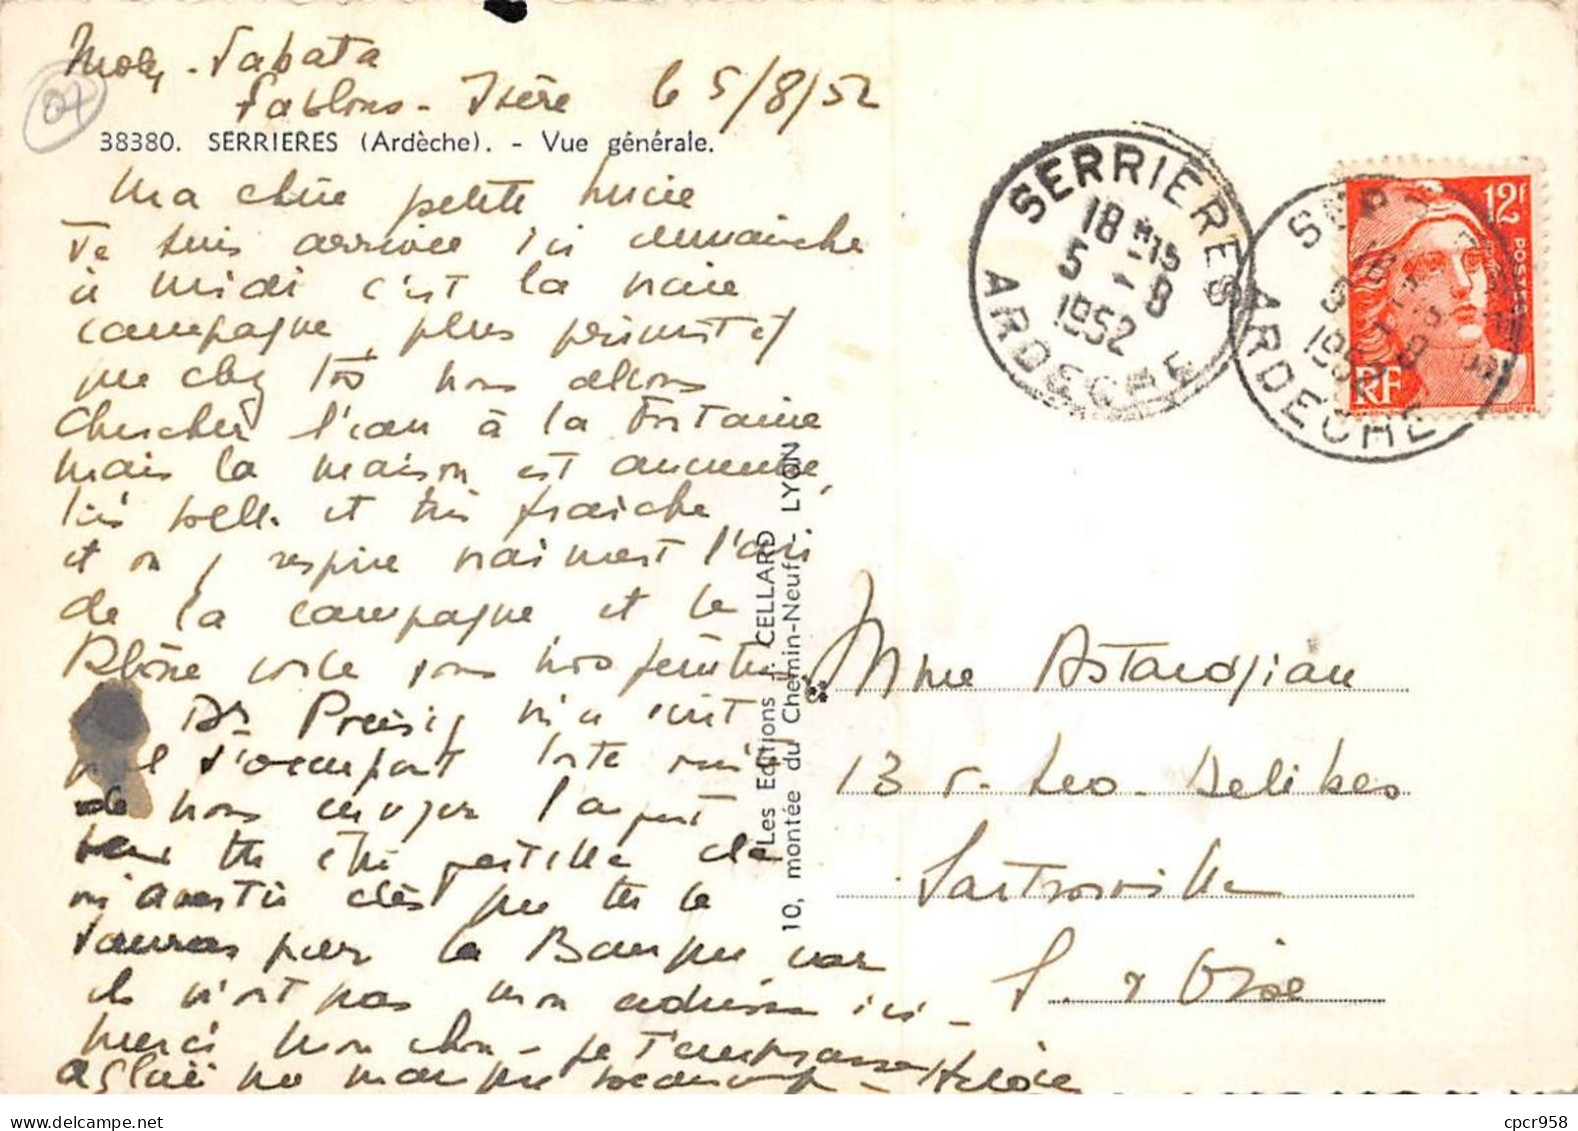 Moly-Sabata
Sablons - Isère le 5/8/52
38380. SERRIERES (Ardèche). - Vue générale.
Ma chère petite Lucie
Je suis arrivée ici dimanche
à midi c'est la vraie
campagne, plus primitif
que chez toi nous allons
chercher l'eau à la fontaine
mais la maison est ancienne,
très belle et très fraiche
et on y respire vraiment l'air
de la campagne et le
Rhône coule sous nos fenêtres
Dr Preisig m'a écrit
qu'il s'occupait
de nous envoyer l'argent
tu
m'avertir dès que tu le
sauras par la Banque car
ils n'ont pas mon adresse ici -
merci mon chou - je t'embrasse
Aglaé me manque beaucoup -
SERRIERES
18 H15
5 - 8
1952
ARDECHE
12F
POSTES
RF
SERRIERES
18 H15
5 - 8
1952
ARDECHE
Les Editions J. CELLARD
10, montée du Chemin-Neuf - LYON
Mme Astardjian
13 r. Leo-Delibes
Sartrouville
S. & Oise
cpcr958